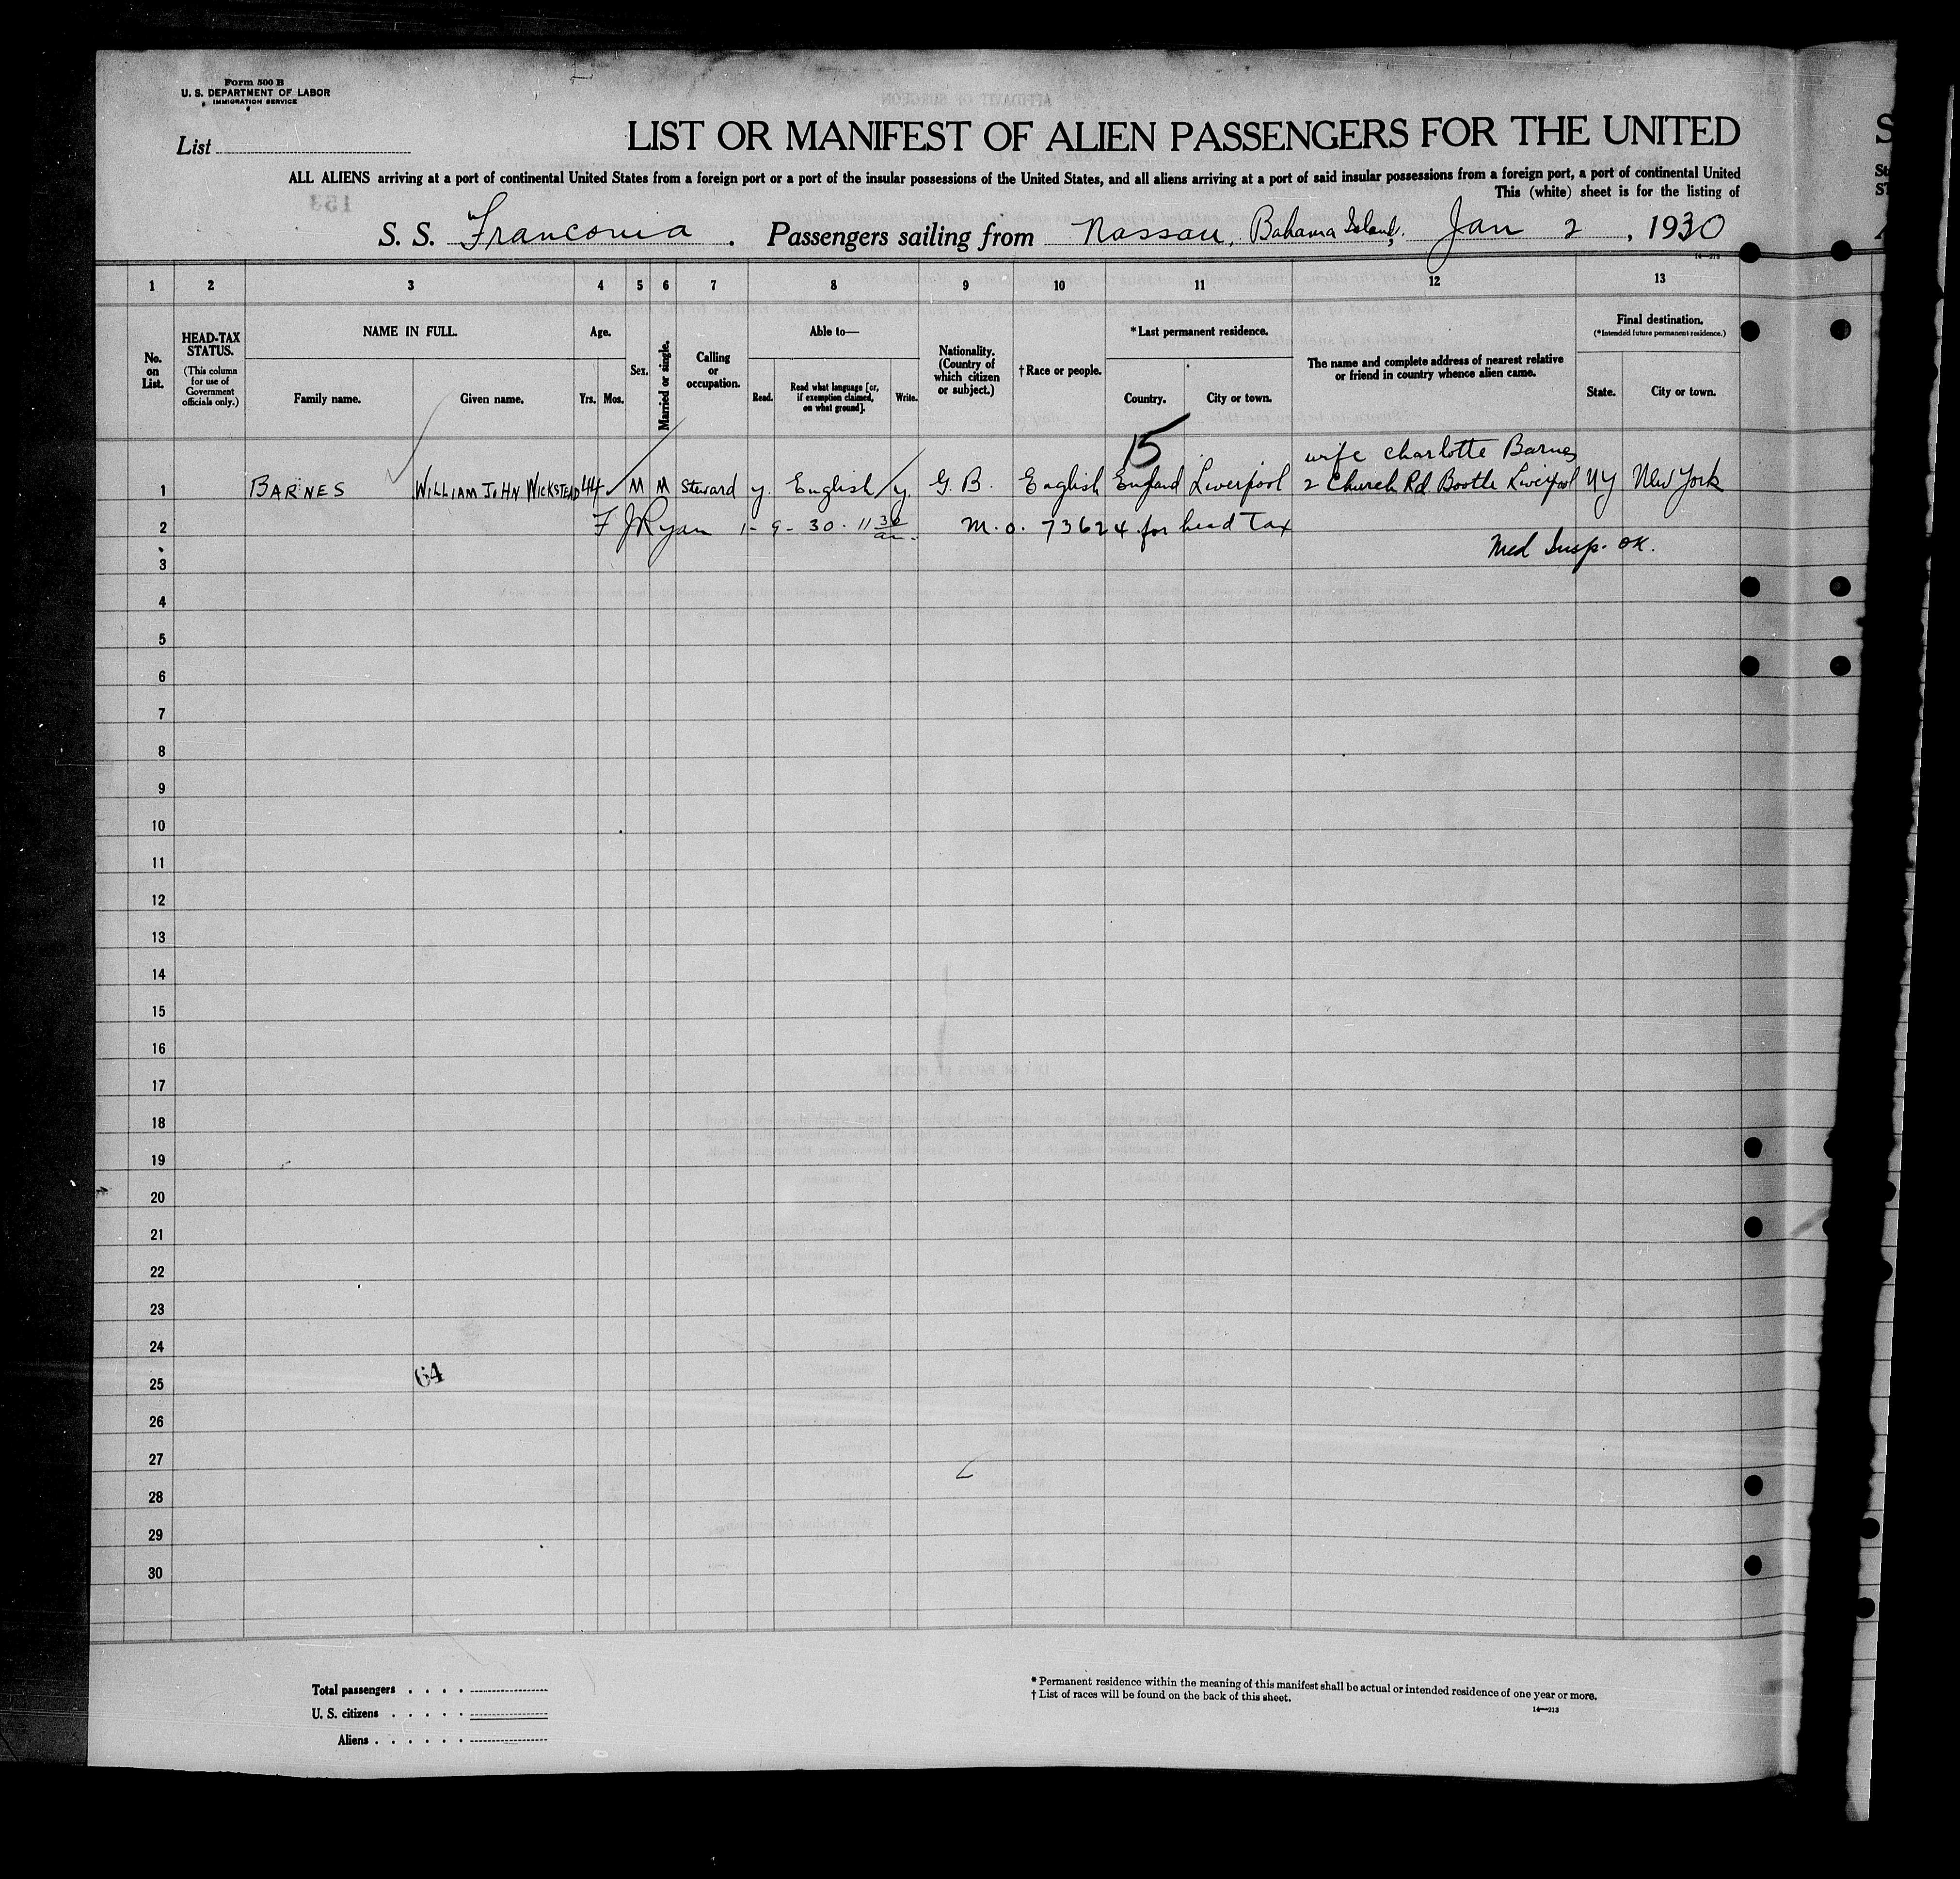 Form 500 B
U. S. DEPARTMENT OF LABOR
IMMIGRATION SERVICE
List
LIST OR MANIFEST OF ALIEN PASSENGERS FOR THE UNITED
ALL ALIENS arriving at a port of continental United States from a foreign port or a port of the insular possessions of the United States, and all aliens arriving at a port of said insular possessions from a foreign port, a port of continental United
This (white) sheet is for the listing of
153
S. S. Franconia . Passengers sailing from Nassau, Bahama Islands. Jan 2 , 1930
14—213
1 2 3 4 5 6 7 8 9 10 11 12 13
No. on List.
HEAD-TAX STATUS.
(This column for use of Government officials only.)
NAME IN FULL.
Family name. Given name.
Age.
Yrs. Mos.
Sex.
Married or single.
Calling or occupation.
Able to—
Read. Read what language [or, if exemption claimed, on what ground]. Write.
Nationality. (Country of which citizen or subject.)
†Race or people.
*Last permanent residence.
Country. City or town.
The name and complete address of nearest relative or friend in country whence alien came.
Final destination.
(*Intended future permanent residence.)
State. City or town.
15
wife Charlotte Barnes
1 BARNES WILLIAM JOHN WICKSTEAD 44 M M Steward y. English y. G. B. English England Liverpool 2 Church Rd Bootle Liverpool N.Y New York
2 F J Ryan 1-9-30. 11 30 am. M.O. 73624 for head Tax
Med Insp. OK.
3
4
5
6
7
8
9
10
11
12
13
14
15
16
17
18
19
20
21
22
23
24
64
25
26
27
28
29
30
Total passengers . . . .
U. S. citizens . . . . .
Aliens . . . . . .
* Permanent residence within the meaning of this manifest shall be actual or intended residence of one year or more.
† List of races will be found on the back of this sheet.
14—213